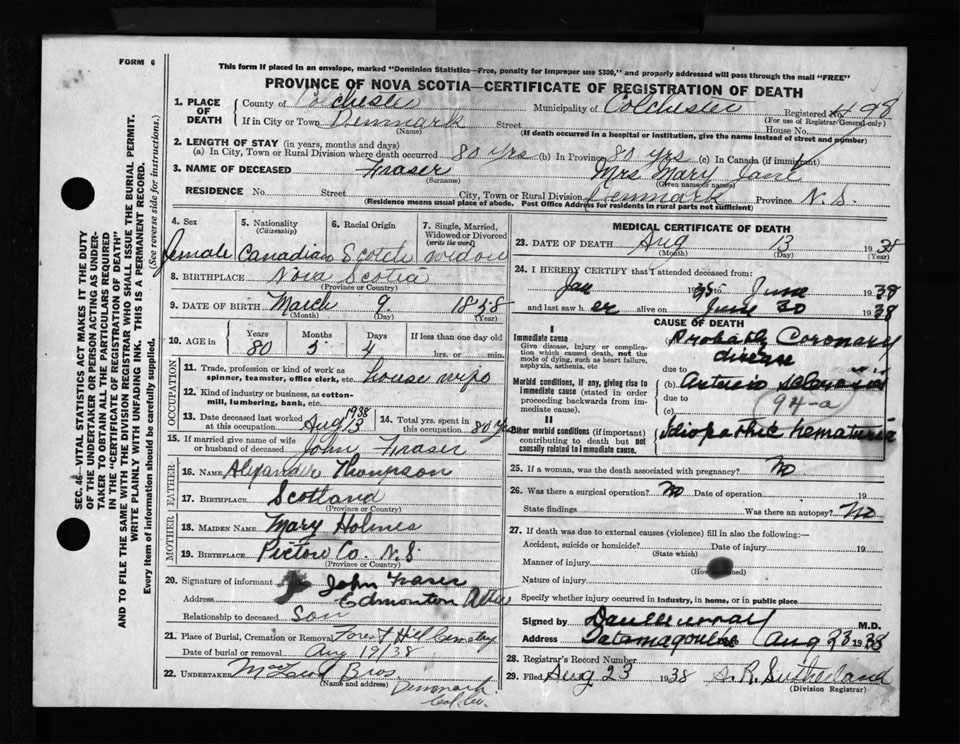 FORM 6
This form if placed in an envelope, marked "Dominion Statistics—Free, penalty for improper use $300," and properly addressed will pass through the mail "FREE"
PROVINCE OF NOVA SCOTIA—CERTIFICATE OF REGISTRATION OF DEATH
1. PLACE OF DEATH
County of Colchester Municipality of Colchester Registered No. 498
(For use of Registrar General only)
If in City or Town Denmark Street House No.
(Name) (If death occurred in a hospital or institution, give the name instead of street and number)
2. LENGTH OF STAY (in years, months and days)
(a) In City, Town or Rural Division where death occurred 80 yrs (b) In Province 80 yrs (c) In Canada (if immigrant)
3. NAME OF DECEASED Fraser Mrs Mary Jane
(Surname) (Given name or names)
RESIDENCE No. Street City, Town or Rural Division Denmark Province N.S.
(Residence means usual place of abode. Post Office Address for residents in rural parts not sufficient)
4. Sex Female
5. Nationality (Citizenship) Canadian
6. Racial Origin Scotch
7. Single, Married, Widowed or Divorced (write the word) widow
8. BIRTHPLACE Nova Scotia
(Province or Country)
9. DATE OF BIRTH March 9 1858
(Month) (Day) (Year)
10. AGE in
Years Months Days If less than one day old
80 5 4 hrs. or min.
OCCUPATION
11. Trade, profession or kind of work as spinner, teamster, office clerk, etc. house wife
12. Kind of industry or business, as cotton-mill, lumbering, bank, etc.
13. Date deceased last worked at this occupation Aug 13 1938
14. Total yrs. spent in this occupation 80 yrs
15. If married give name of wife or husband of deceased John Fraser
FATHER
16. NAME Alexander Thompson
17. BIRTHPLACE Scotland
(Province or Country)
MOTHER
18. MAIDEN NAME Mary Holmes
19. BIRTHPLACE Pictou Co. N.S.
(Province or Country)
20. Signature of informant John Fraser
Address Edmonton Alta
Relationship to deceased son
21. Place of Burial, Cremation or Removal Forest Hill Cemetry
Date of burial or removal Aug 19/38
22. UNDERTAKER MacLeod Bros.
(Name and address) Denmark
Col. Co.
MEDICAL CERTIFICATE OF DEATH
23. DATE OF DEATH Aug 13 1938
(Month) (Day) (Year)
24. I HEREBY CERTIFY that I attended deceased from
Jan 1935 to June 1938
and last saw h er alive on June 30 1938
CAUSE OF DEATH
I
Immediate cause
Give disease, injury or complication which caused death, not the mode of dying, such as heart failure, asphyxia, asthenia, etc
Probably Coronary disease
due to
Morbid conditions, if any, giving rise to immediate cause (stated in order proceeding backwards from immediate cause).
(b) Arterio Sclerosis
due to
(c) 94-a
II
Other morbid conditions (if important) contributing to death but not causally related to immediate cause.
Idiopathic hematuria
25. If a woman, was the death associated with pregnancy? No
26. Was there a surgical operation? No Date of operation 19
State findings Was there an autopsy? No
27. If death was due to external causes (violence) fill in also the following:
Accident, suicide or homicide? Date of injury 19
(State which)
Manner of injury
(How sustained)
Nature of injury
Specify whether injury occurred in industry, in home, or in public place
Signed by Dan Murray M.D.
Address Tatamagouche Aug 23 1938
28. Registrar's Record Number
29. Filed Aug 23 1938 S. R. Sutherland
(Division Registrar)
SEC. 46—VITAL STATISTICS ACT MAKES IT THE DUTY
OF THE UNDERTAKER OR PERSON ACTING AS UNDER-
TAKER TO OBTAIN ALL THE PARTICULARS REQUIRED
IN THE "CERTIFICATE OF REGISTRATION OF DEATH"
AND TO FILE THE SAME WITH THE DIVISION REGISTRAR WHO SHALL ISSUE THE BURIAL PERMIT.
WRITE PLAINLY WITH UNFADING INK. THIS IS A PERMANENT RECORD.
Every item of information should be carefully supplied. (See reverse side for instructions.)